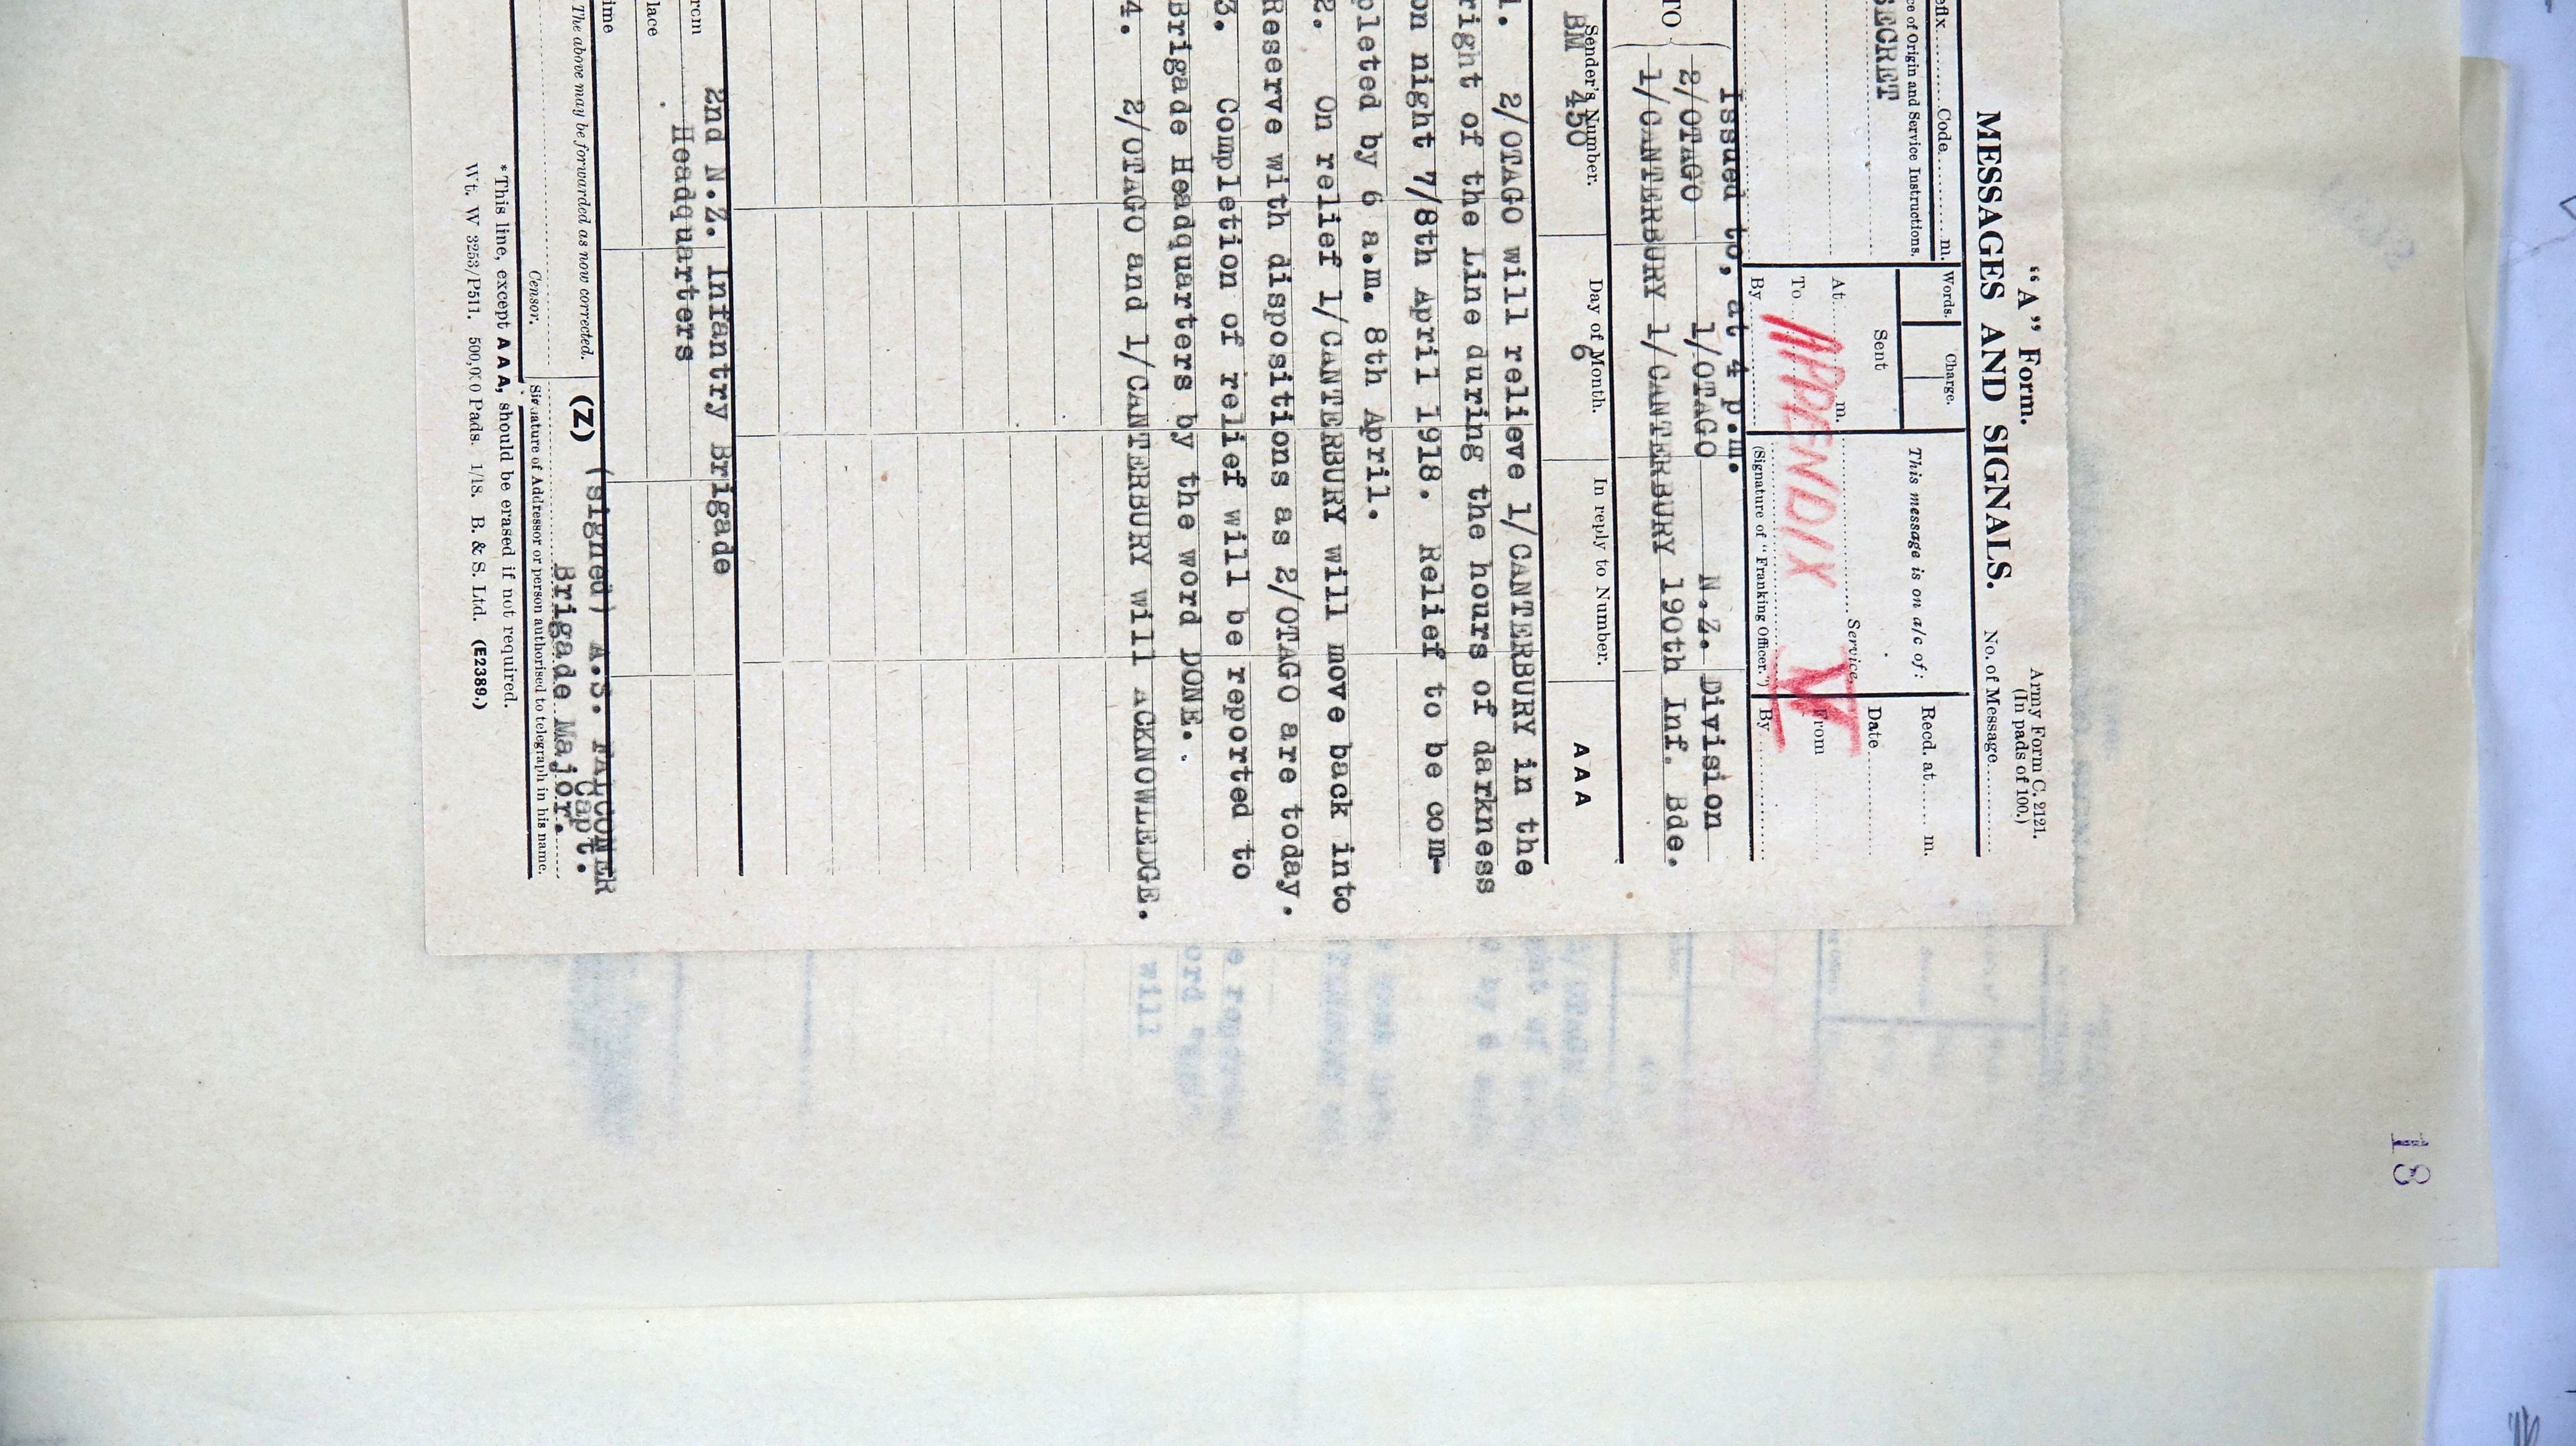 "A" Form.
Army Form C. 2121.
(In pads of 100.)
MESSAGES AND SIGNALS.
No. of Message
efix Code m.
Words. Charge.
This message is on a/c of:
Recd. at m.
ce of Origin and Service Instructions.
SECRET
Sent
At m.
To
By
Service.
(Signature of "Franking Officer.")
Date
From
By
APPENDIX V
Issued to, at 4 p.m.
TO
2/OTAGO 1/OTAGO N.Z. Division
1/CANTERBURY 1/CANTERBURY 190th Inf. Bde.
Sender's Number. Day of Month. In reply to Number.
BM 450 6 AAA
1. 2/OTAGO will relieve 1/CANTERBURY in the
right of the Line during the hours of darkness
on night 7/8th April 1918. Relief to be com-
pleted by 6 a.m. 8th April.
2. On relief 1/CANTERBURY will move back into
Reserve with dispositions as 2/OTAGO are today.
3. Completion of relief will be reported to
Brigade Headquarters by the word DONE.
4. 2/OTAGO and 1/CANTERBURY will ACKNOWLEDGE.
rom 2nd N.Z. Infantry Brigade
lace Headquarters
ime
The above may be forwarded as now corrected. (Z) (signed) A.S. FALCONER
Capt.
Brigade Major.
Censor. Signature of Addressor or person authorised to telegraph in his name.
*This line, except A A A, should be erased if not required.
Wt. W 3253/P511. 500,000 Pads. 1/18. B. & S. Ltd. (E2389.)
e re
ord
will
18